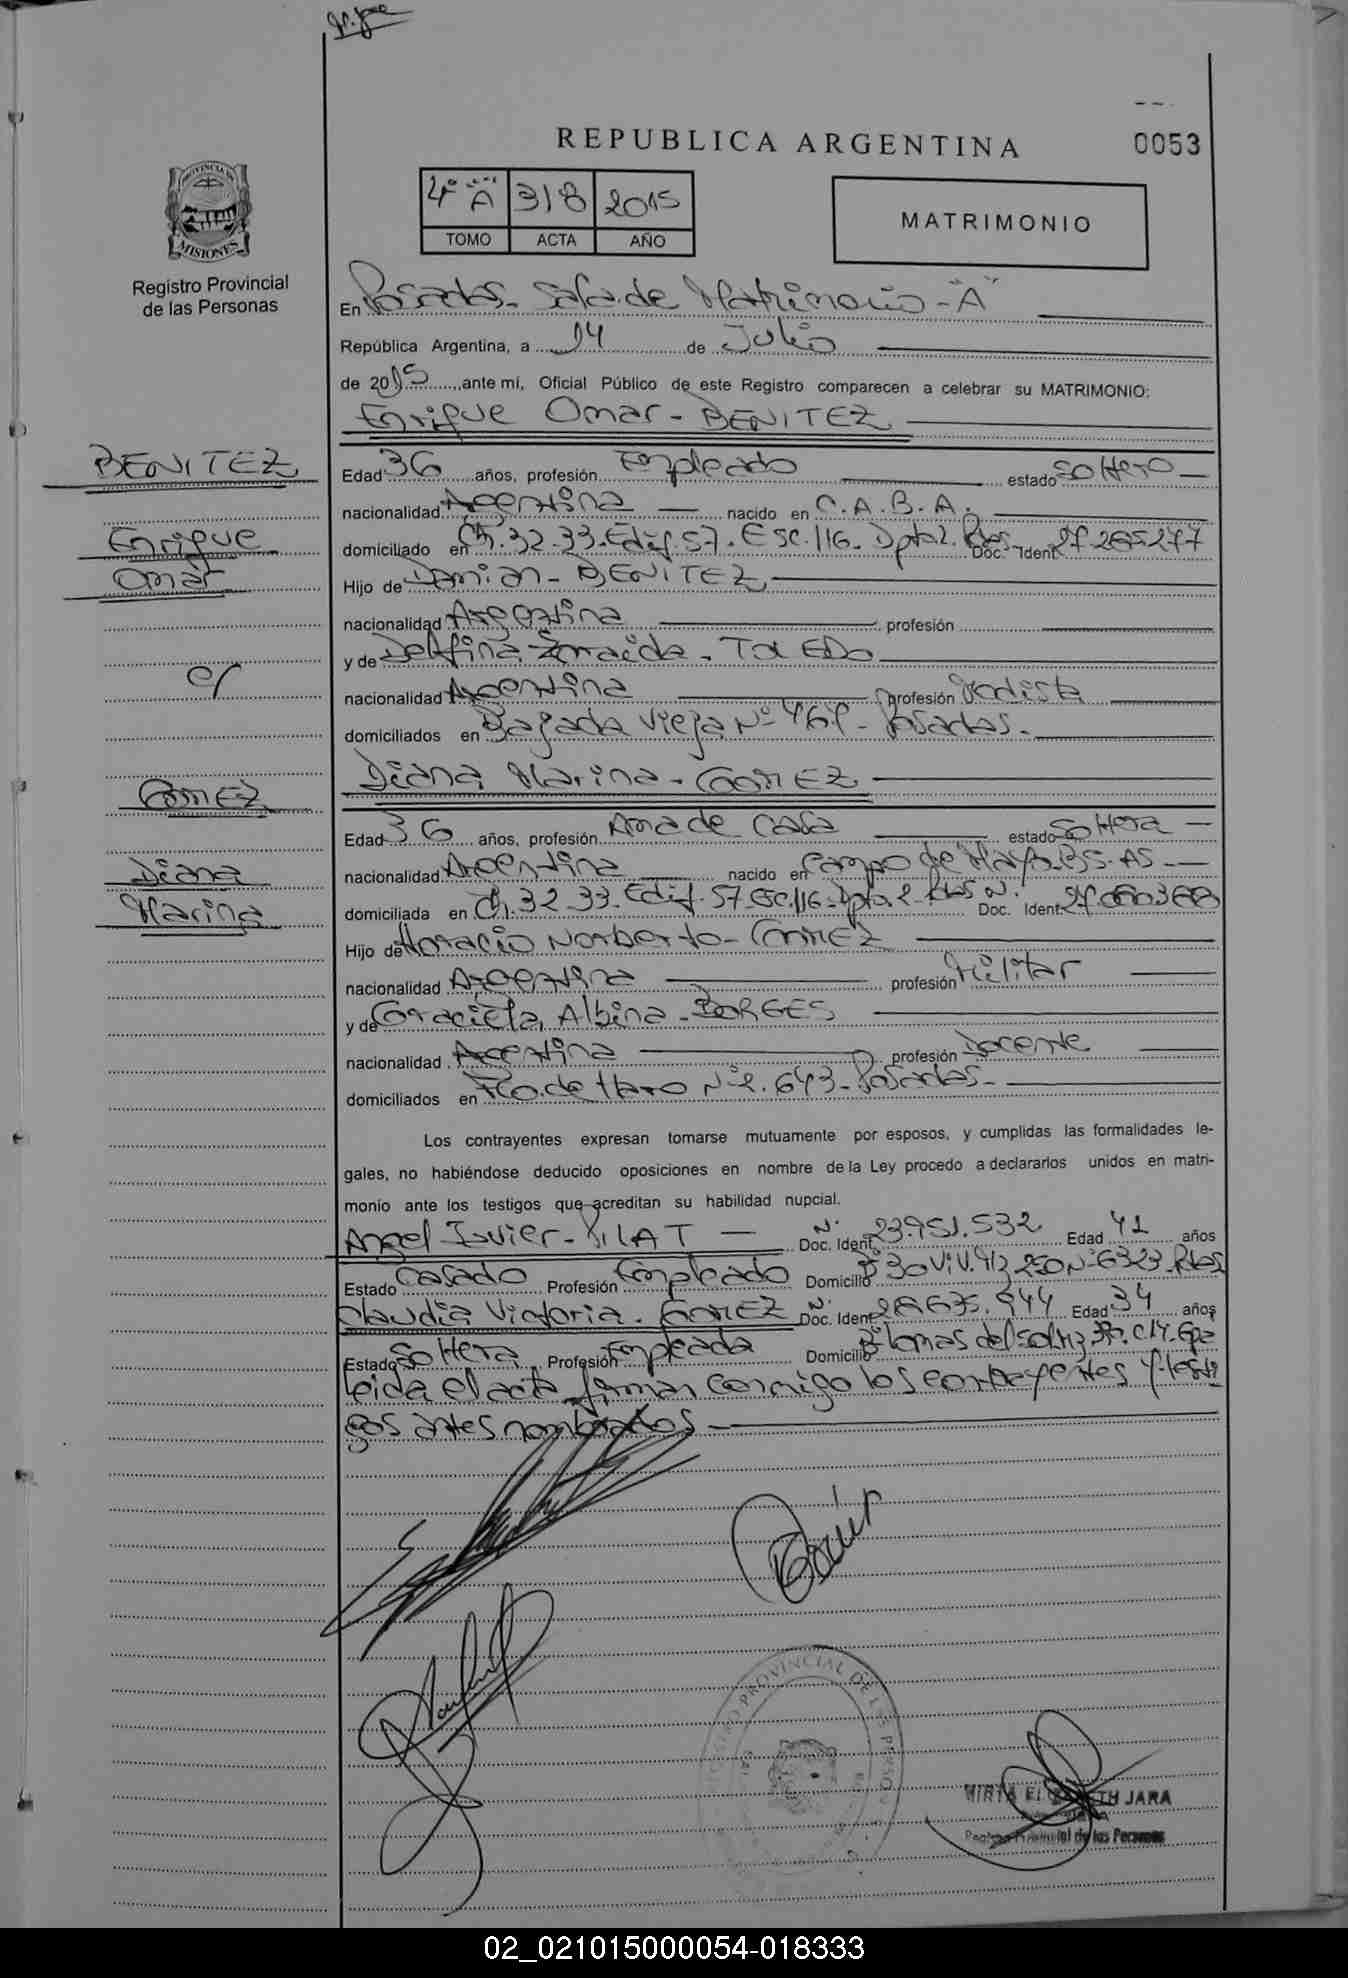 REPUBLICA ARGENTINA
0053
4° "A" 318 2015
TOMO ACTA AÑO
MATRIMONIO
PROVINCIA DE
MISIONES
Registro Provincial
de las Personas
En Posadas- Sala de Matrimonio-"A"
República Argentina, a 14 de Julio
de 2015, ante mi, Oficial Público de este Registro comparecen a celebrar su MATRIMONIO:
Enrique Omar- BENITEZ
BENITEZ
Enrique
Omar
c/
GOMEZ
Diana
Marina
Edad 36 años, profesión Empleado estado Soltero
nacionalidad Argentina nacido en C.A.B.A.
domiciliado en Ch.32.33.Edif.57.Esc.116.Dpto2. Doc. Ident. 27.285277
Hijo de Damian- BENITEZ
nacionalidad Argentina profesión
y de Delfina Zoraida- TOLEDO
nacionalidad Argentina profesión Modista
domiciliados en Bajada Vieja N° Posadas.
Diana Marina- GOMEZ
Edad 36 años, profesión Ama de Casa estado Soltera
nacionalidad Argentina nacido en Campo de Mayo.BS.AS.
domiciliada en Ch.32.33.Edif.57.Esc.116.Dpto.2. Doc. Ident.
Hijo de Horacio Norberto- GOMEZ
nacionalidad Argentina profesión Militar
y de Graciela Albina- BORGES
nacionalidad Argentina profesión Docente
domiciliados en Fco.de Haro N°2.643- Posadas-
Los contrayentes expresan tomarse mutuamente por esposos, y cumplidas las formalidades le-
gales, no habiéndose deducido oposiciones en nombre de la Ley procedo a declararlos unidos en matri-
monio ante los testigos que acreditan su habilidad nupcial.
Angel Javier- PILAT N° Doc. Ident. 23.951.532 Edad 41 años
Estado Casado Profesión Empleado Domicilio
Claudia Victoria- GOMEZ N° Doc. Ident. Edad 34 años
Estado Soltera Profesión Empleada Domicilio
Leida el acta firman conmigo los contrayentes y testi
gos antes nombrados
REGISTRO PROVINCIAL DE LAS PERSONAS
MIRTA ELIZABETH JARA
Registro Provincial de las Personas
02_021015000054-018333